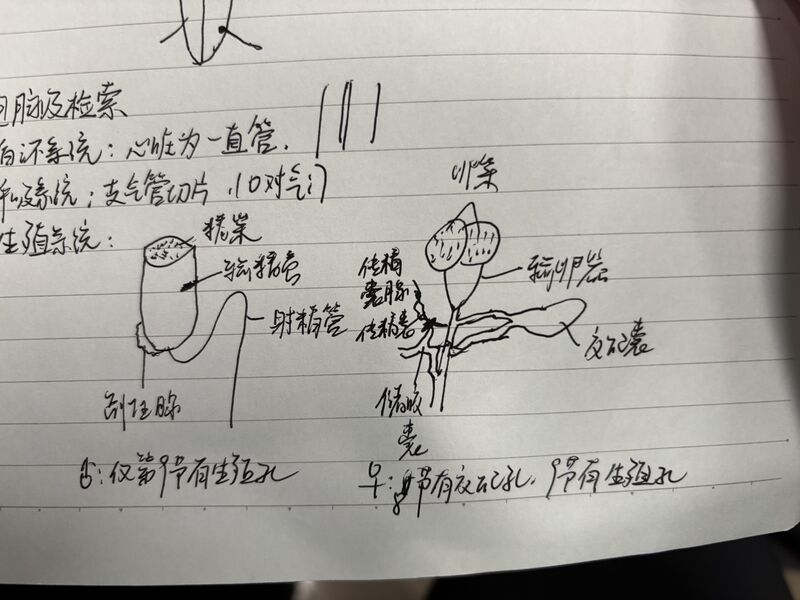 脑及检索
系统：心脏为一直管.
吸系统；支气管切片，10对气门
生殖系统：
精巢
输精管
射精管
副性腺
♂：仅第9节有生殖孔
卵巢
输卵管
交配囊
♀：8节有交配孔，9节有生殖孔